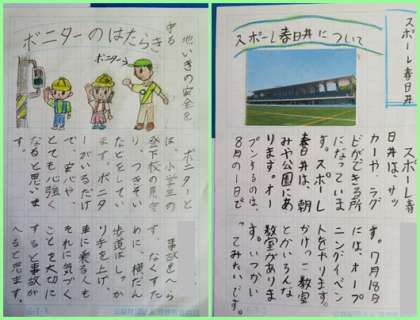 ボニターのはたらき
地いきの安全を
守る
ボニター
ボニターと
は、小学生の
登下校の見守
り、つきそい
などをしてい
ます。ボニタ
ーがいるだけ
で、安心や、
とても心強く
なると思いま
す。
事故をへら
す、なくすた
めに、横だん
歩道はしっか
り手を上げ、
車に乗る人も
それに気づく
ことを大切に
すると事故が
へると思ます。
スポーレ春日井
スポーレ春日井について
スポーレ春
日井は、サッ
カーや、ラグ
ビができる所
になっていま
す。スポーレ
春日井は、朝
みや公園にあ
ります。オー
プンするのは、
8月の1日で
す。7月18日
には、オープ
ニングイベン
トをやります。
かけっこ教室
とかいろんな
教室があります。
いつかい
ってみたいです。